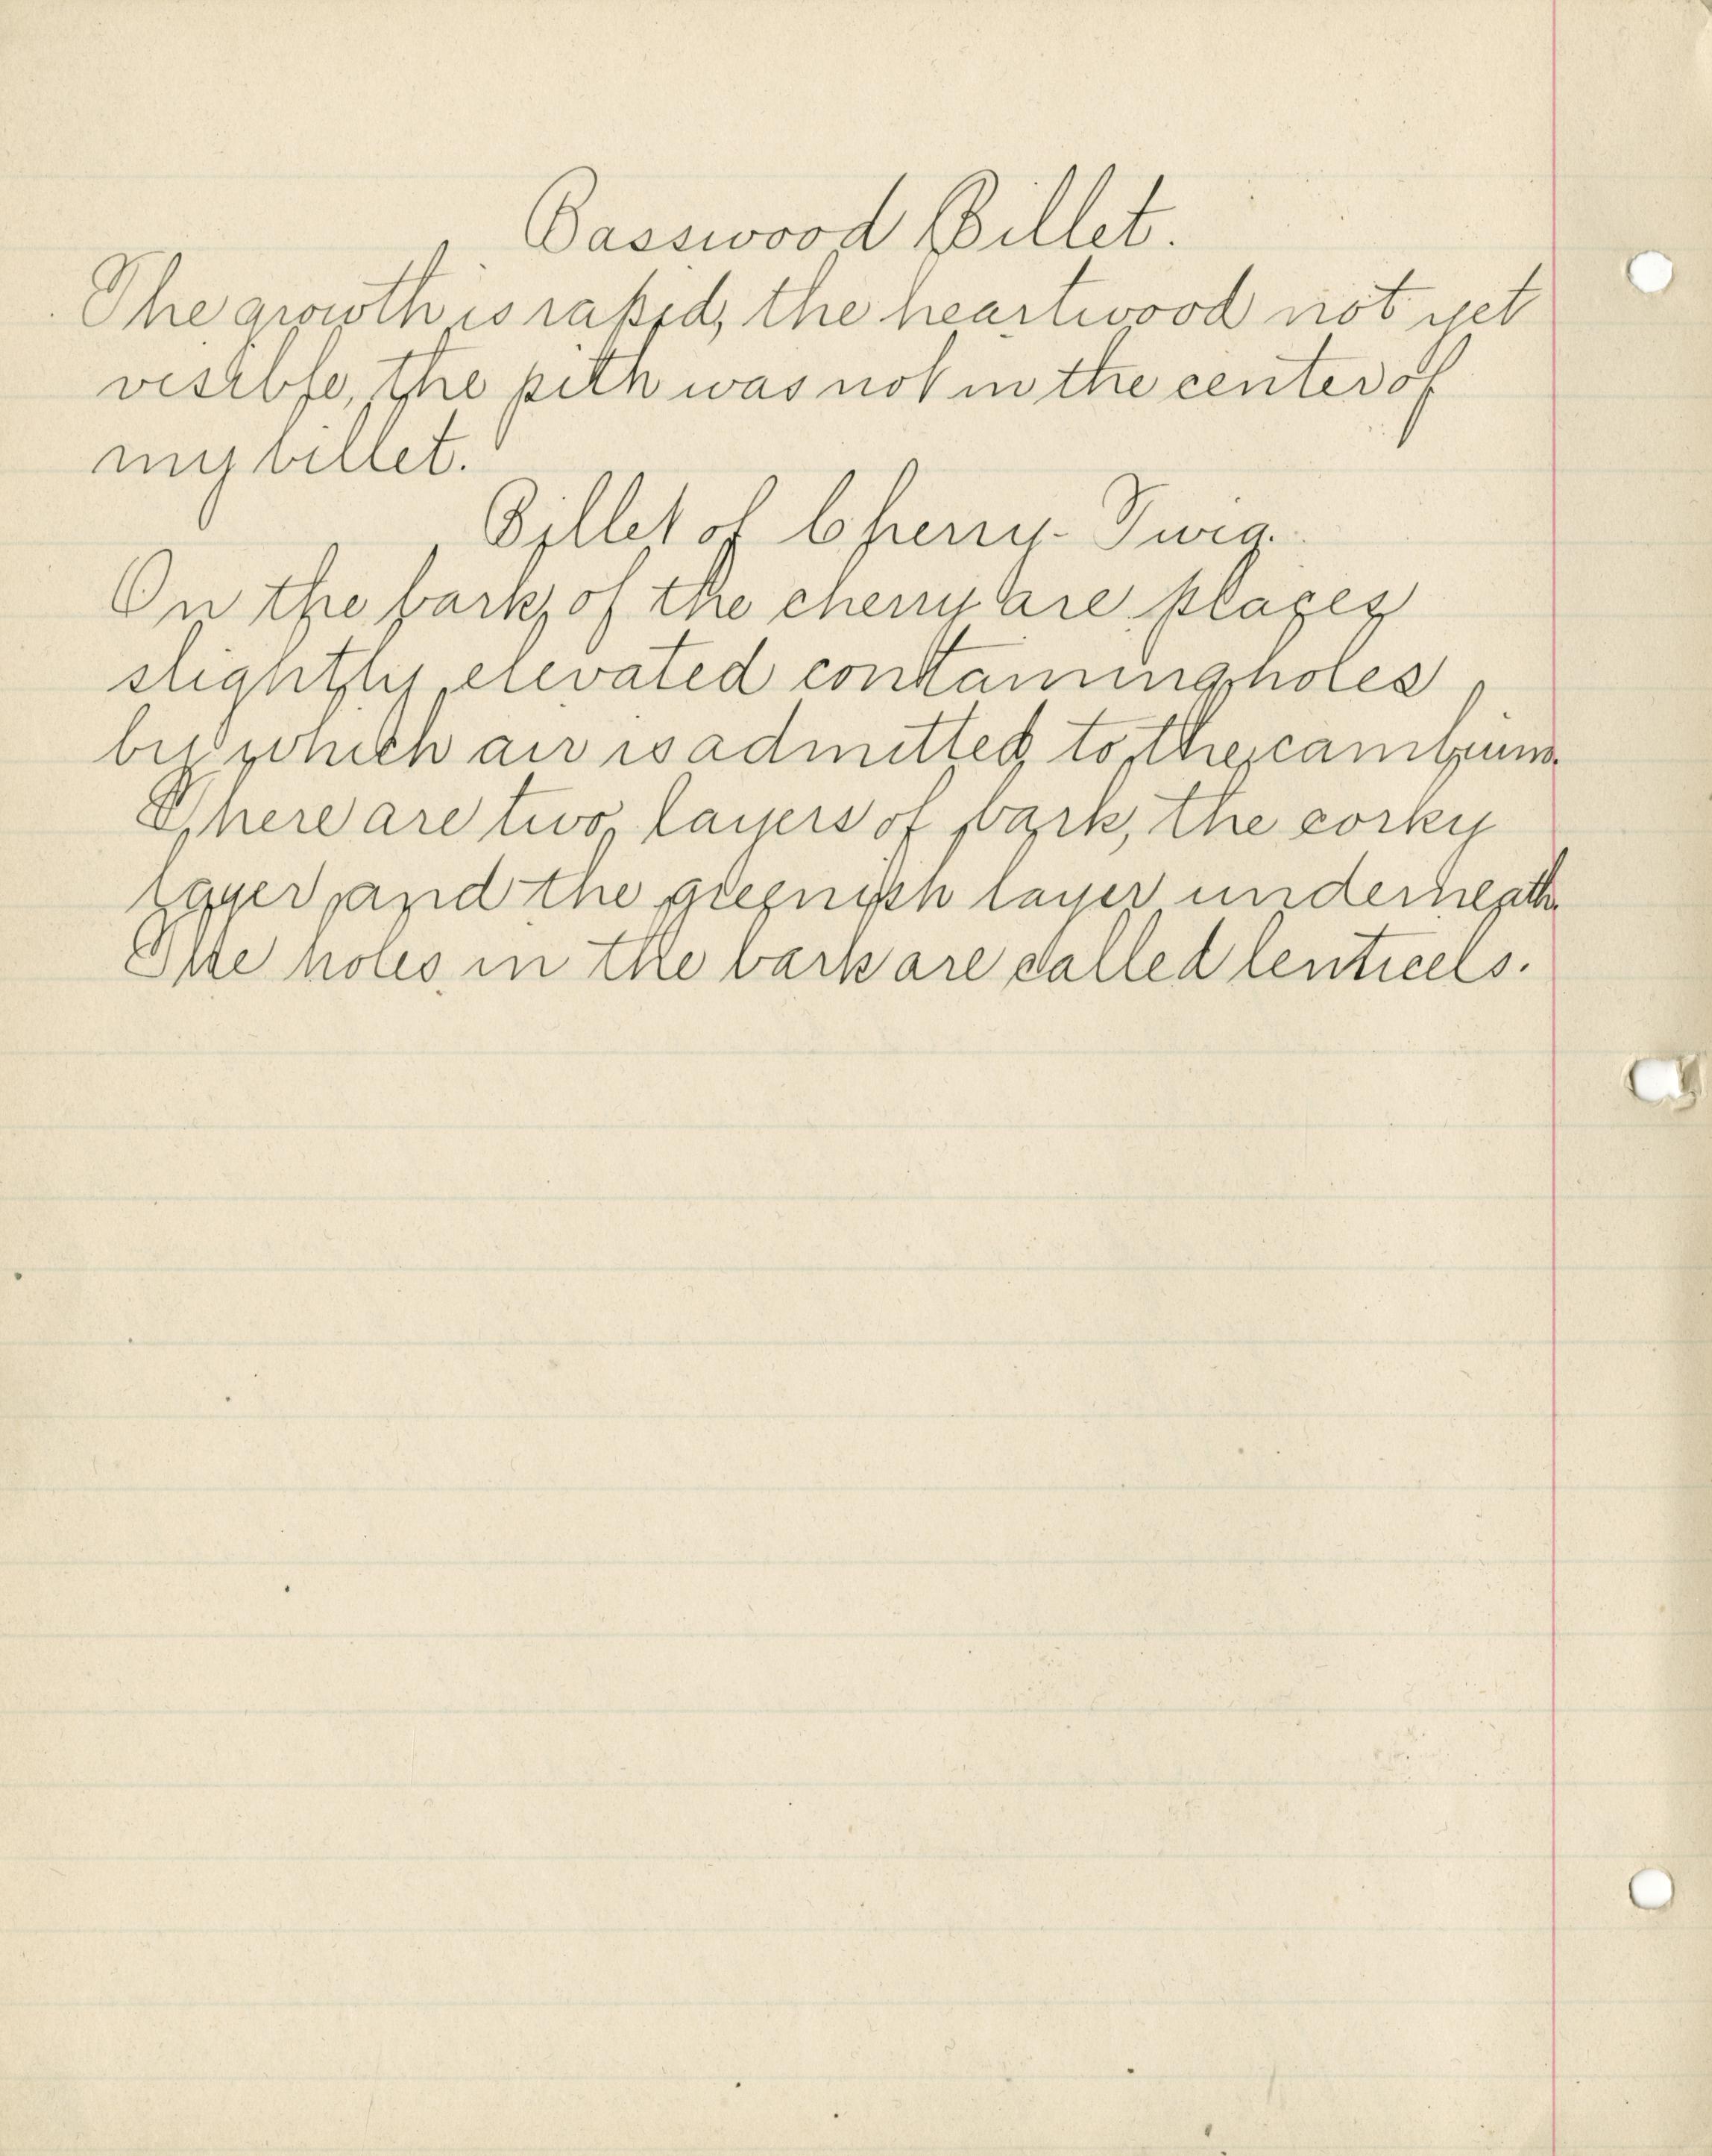 Basswood Billet.
The growth is rapid, the heartwood not yet
visible, the pith was not in the center of
my billet.
Billet of Cherry-Twig.
On the bark of the cherry are places
slightly elevated containing holes
by which air is admitted to the cambium.
There are two layers of bark, the corky
layer and the greenish layer underneath.
The holes in the bark are called lenticels.